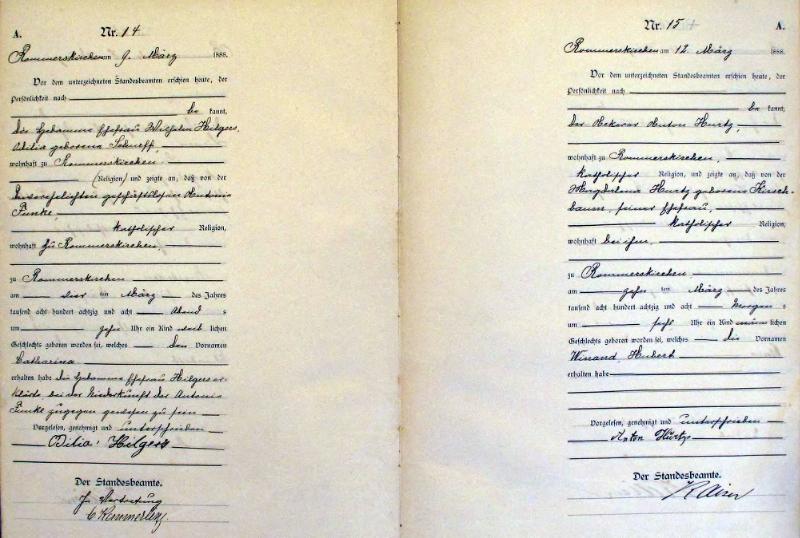 A. Nr. 14
Rommerskirchen am 9. März 1888.
Vor dem unterzeichneten Standesbeamten erschien heute, der
Persönlichkeit nach
be kannt,
die Hebamme Ehefrau Wilhelm Hilgers,
Odilia geborene
wohnhaft zu Rommerskirchen
(Religion) und zeigte an, daß von der
unverehelichten geschäftslosen Antonia
Funke,
katholischer Religion,
wohnhaft zu Rommerskirchen,
zu Rommerskirchen
am vier ten März des Jahres
tausend acht hundert achtzig und acht Abend s
um zehn Uhr ein Kind weib lichen
Geschlechts geboren worden sei, welches den Vornamen
Catharina
erhalten habe die Hebamme Ehefrau Hilgers er-
klärte, bei der Niederkunft der Antonia
Funke zugegen gewesen zu sein
Vorgelesen, genehmigt und unterschrieben
Odilia Hilgers
Der Standesbeamte.
In Vertretung
Nr. 15 A.
Rommerskirchen am 12. März 1888.
Vor dem unterzeichneten Standesbeamten erschien heute, der
Persönlichkeit nach
be kannt,
der Ackerer Anton Hurtz,
wohnhaft zu Rommerskirchen,
katholischer Religion, und zeigte an, daß von der
Magdalena Hurtz geborene Kirsch-
baum, seiner Ehefrau,
katholischer Religion,
wohnhaft bei ihm,
zu Rommerskirchen
am zehn ten März des Jahres
tausend acht hundert achtzig und acht Morgen s
um sechs Uhr ein Kind männ lichen
Geschlechts geboren worden sei, welches die Vornamen
Winand Hubert
erhalten habe
Vorgelesen, genehmigt und unterschrieben
Anton Hürtz
Der Standesbeamte.